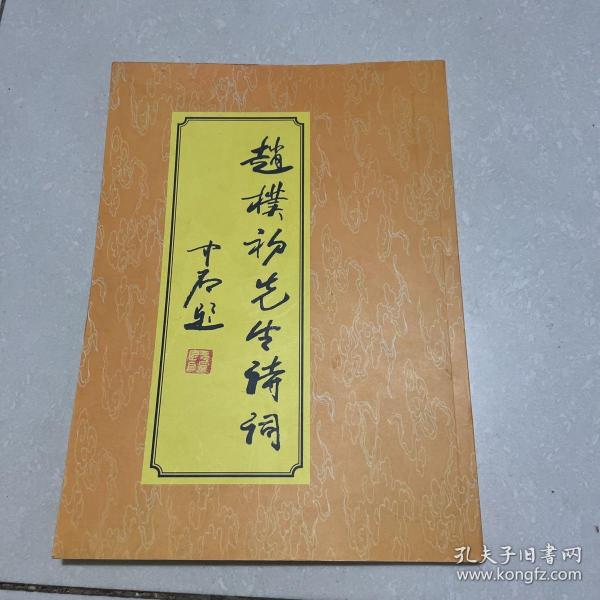 趙樸初先生诗词
中石题
孔夫子旧書网
www.kongfz.com